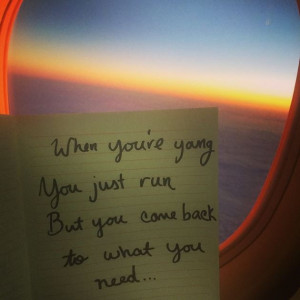 When you're yang
You just run
But you come back
to what you
need...